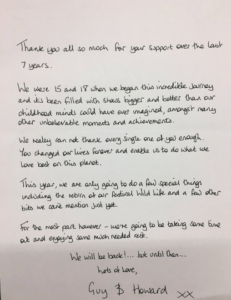 Thank you all so much for your support over the last
7 years.
We were 15 and 18 when we began this incredible journey
and its been filled with shows bigger and better than our
childhood minds could have ever imagined, amongst many
other unbelievable moments and achievements.
We really can not thank every single one of you enough.
You changed our lives forever and enable us to do what we
love best on this planet.
This year, we are only going to do a few special things
including the return of our festival Wild Life and a few other
bits we cant mention just yet.
For the most part however - we're going to be taking some time
out and enjoying some much needed rest.
We will be back!... but until then...
Lots of love,
Guy & Howard xx